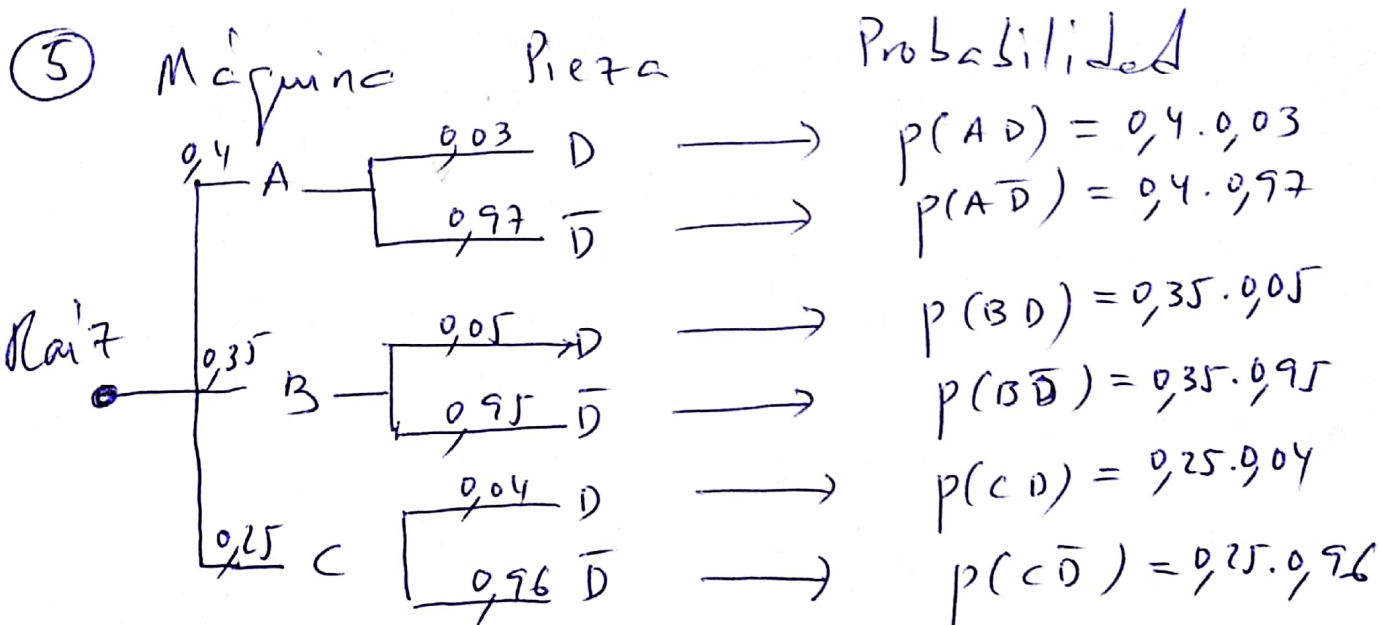 5 Máquina Pieza Probabilidad
0,4 A 0,03 D p(AD) = 0,4.0,03
0,97 D̅ p(AD̅) = 0,4.0,97
Raíz
0,35 B 0,05 D p(BD) = 0,35.0,05
0,95 D̅ p(BD̅) = 0,35.0,95
0,25 C 0,04 D p(CD) = 0,25.0,04
0,96 D̅ p(CD̅) = 0,25.0,96